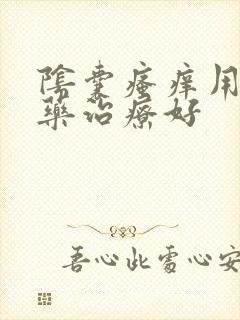 陰囊瘙痒用
藥治療好
吾心此處心安